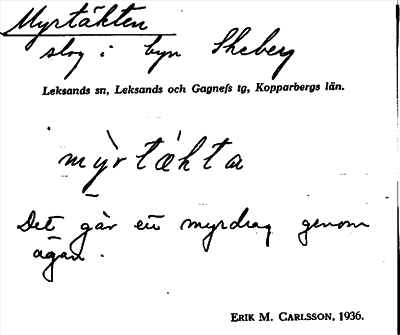 Myrtäkten
slog i byn Skeberg
Leksands sn, Leksands och Gagnefs tg, Kopparbergs län.
mỳ̱rtǽkta
Det går ett myrdrag genom
ägan.
ERIK M. CARLSSON, 1936.